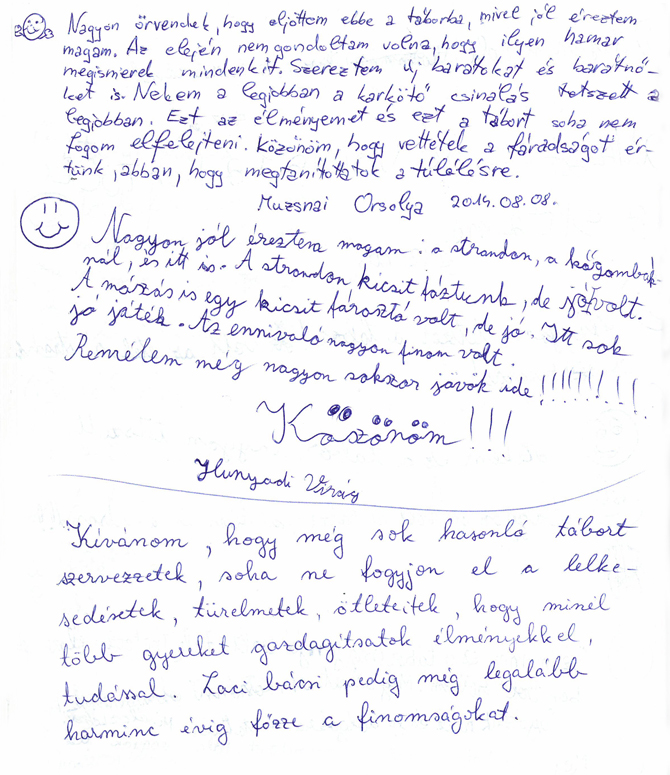 Nagyon örvendek, hogy eljöttem ebbe a táborba, mivel jól éreztem
magam. Az elején nem gondoltam volna, hogy ilyen hamar
megismerek mindenkit. Szereztem új barátokat és barátnő-
ket is. Nekem a legjobban a karkötő csinálás tetszett a
legjobban. Ezt az élményemet és ezt a tábort soha nem
fogom elfelejteni. Közönöm, hogy vettétek a fáradságot ér-
tünk, abban, hogy megtanítottatok a túlélésre.
Muzsnai Orsolya 2014.08.08.
Nagyon jól éreztem magam: a strandon, a kőgombák-
nál, és itt is. A strandon kicsit fáztunk, de jó volt.
A mászás is egy kicsit fárosztó volt, de jó. Itt sok
jó játék. Az ennivaló nagyon finom volt.
Remélem még nagyon sokszor jövök ide!!!!!!!!!
Köszönöm!!!
Hunyadi Virág
Kívánom, hogy még sok hasonló tábort
szervezzetek, soha ne fogyjon el a lelke-
sedésetek, türelmetek, ötleteitek, hogy minél
több gyereket gazdagítsatok élményekkel,
tudással. Laci bácsi pedig még legalább
harminc évig főzze a finomságokat.